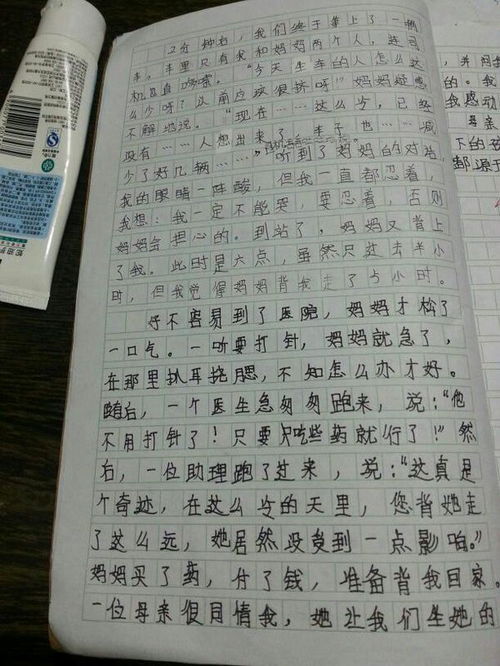 2分钟后，我们终于等上了一辆
车。车里只有我和妈妈两个人，连司
机直直咳嗽。“今天坐车的人怎么这
么少呀？以前应该很挤呀”妈妈疑惑
不解地说。“现在……这么岁，已经
没有……人想出来了，车子也……减
少了好几辆……”听到了妈妈的对话，
我的眼睛一阵酸，但我一直都忍着，
我想：我一定不能哭，要忍着，否则
妈妈会担心的。到站了，妈妈又背上
了我。此时是六点，虽然只过去半小
时，但我觉得妈妈背我走了5小时。
好不容易到了医院，妈妈才松了
一口气。一听要打针，妈妈就急了，
在那里扒耳挠腮，不知怎么办才好。
随后，一个医生急匆匆跑来，说：“他
不用打针了！只要只吃些药就行了！”然
后，一位助理跑了过来，说：“这真是
个奇迹，在这么冷的天里，您背她走
了这么远，她居然没受到一点影响。”
妈妈买了药，付了钱，准备背我回家。
一位母亲很同情我，她让我们坐她的
，并用
的。我
我感动
母亲
下的孩
都源于